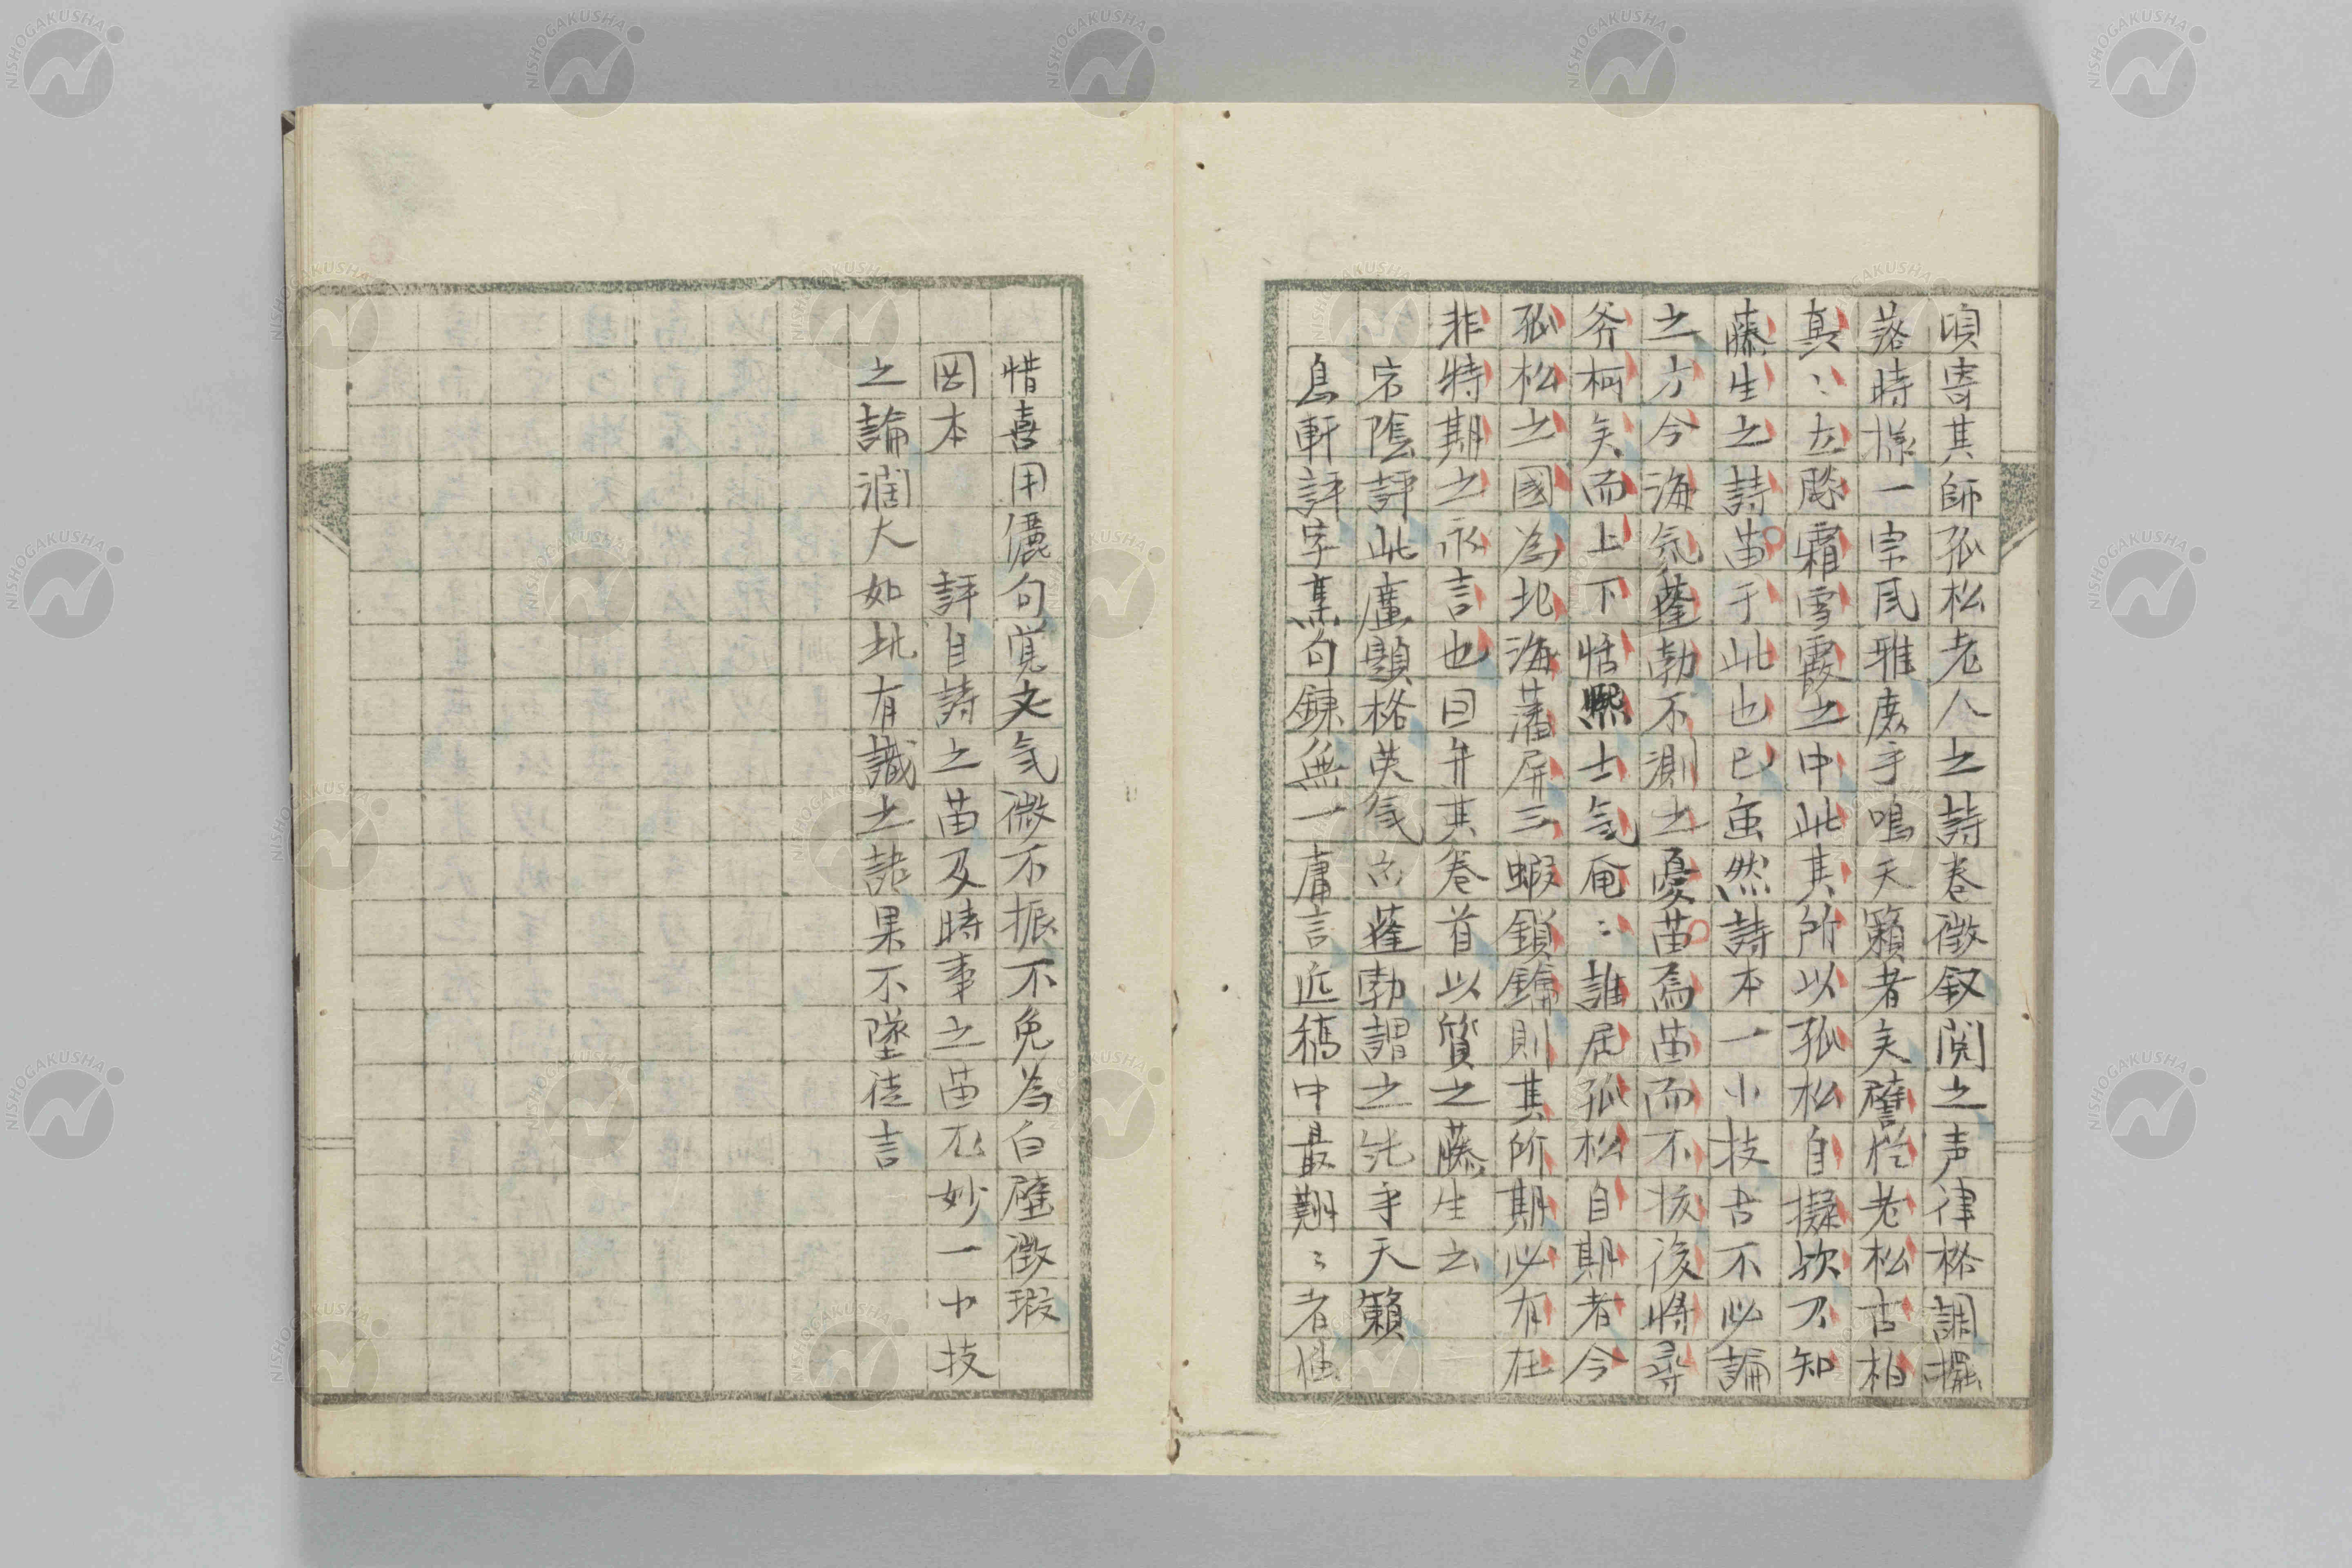 頃寄其師孤松老人之詩巻徴叙閲之声律格調擺
落時様一宗風雅庶乎鳴天籟者矣譬於老松古柏
真〻立於霜雪霞之中此其所以孤松自擬欤不知
藤生之詩苗于此也已虽然詩本一小技吉不必論
之方今海気蓬勃不測之憂苗焉苗而不抜後将尋
斧柯矣而上下恬熙士気奄〻誰居孤松自期者今
孤松之國為北海藩屏三蝦鎖鑰則其所期必有在
非特期之永言也因弁其巻首以質之藤生云
宕陰評此應題格英気亦蓬勃謂之先乎天籟
烏軒評字烹句錬無一庸言近稿中最翹〻者但
惜喜用儷句覚文気微不振不免為白璧微瑕
岡本　評自詩之苗及時事之苗亦妙一小技
之論濶大如此有識之諸果不墜徒言